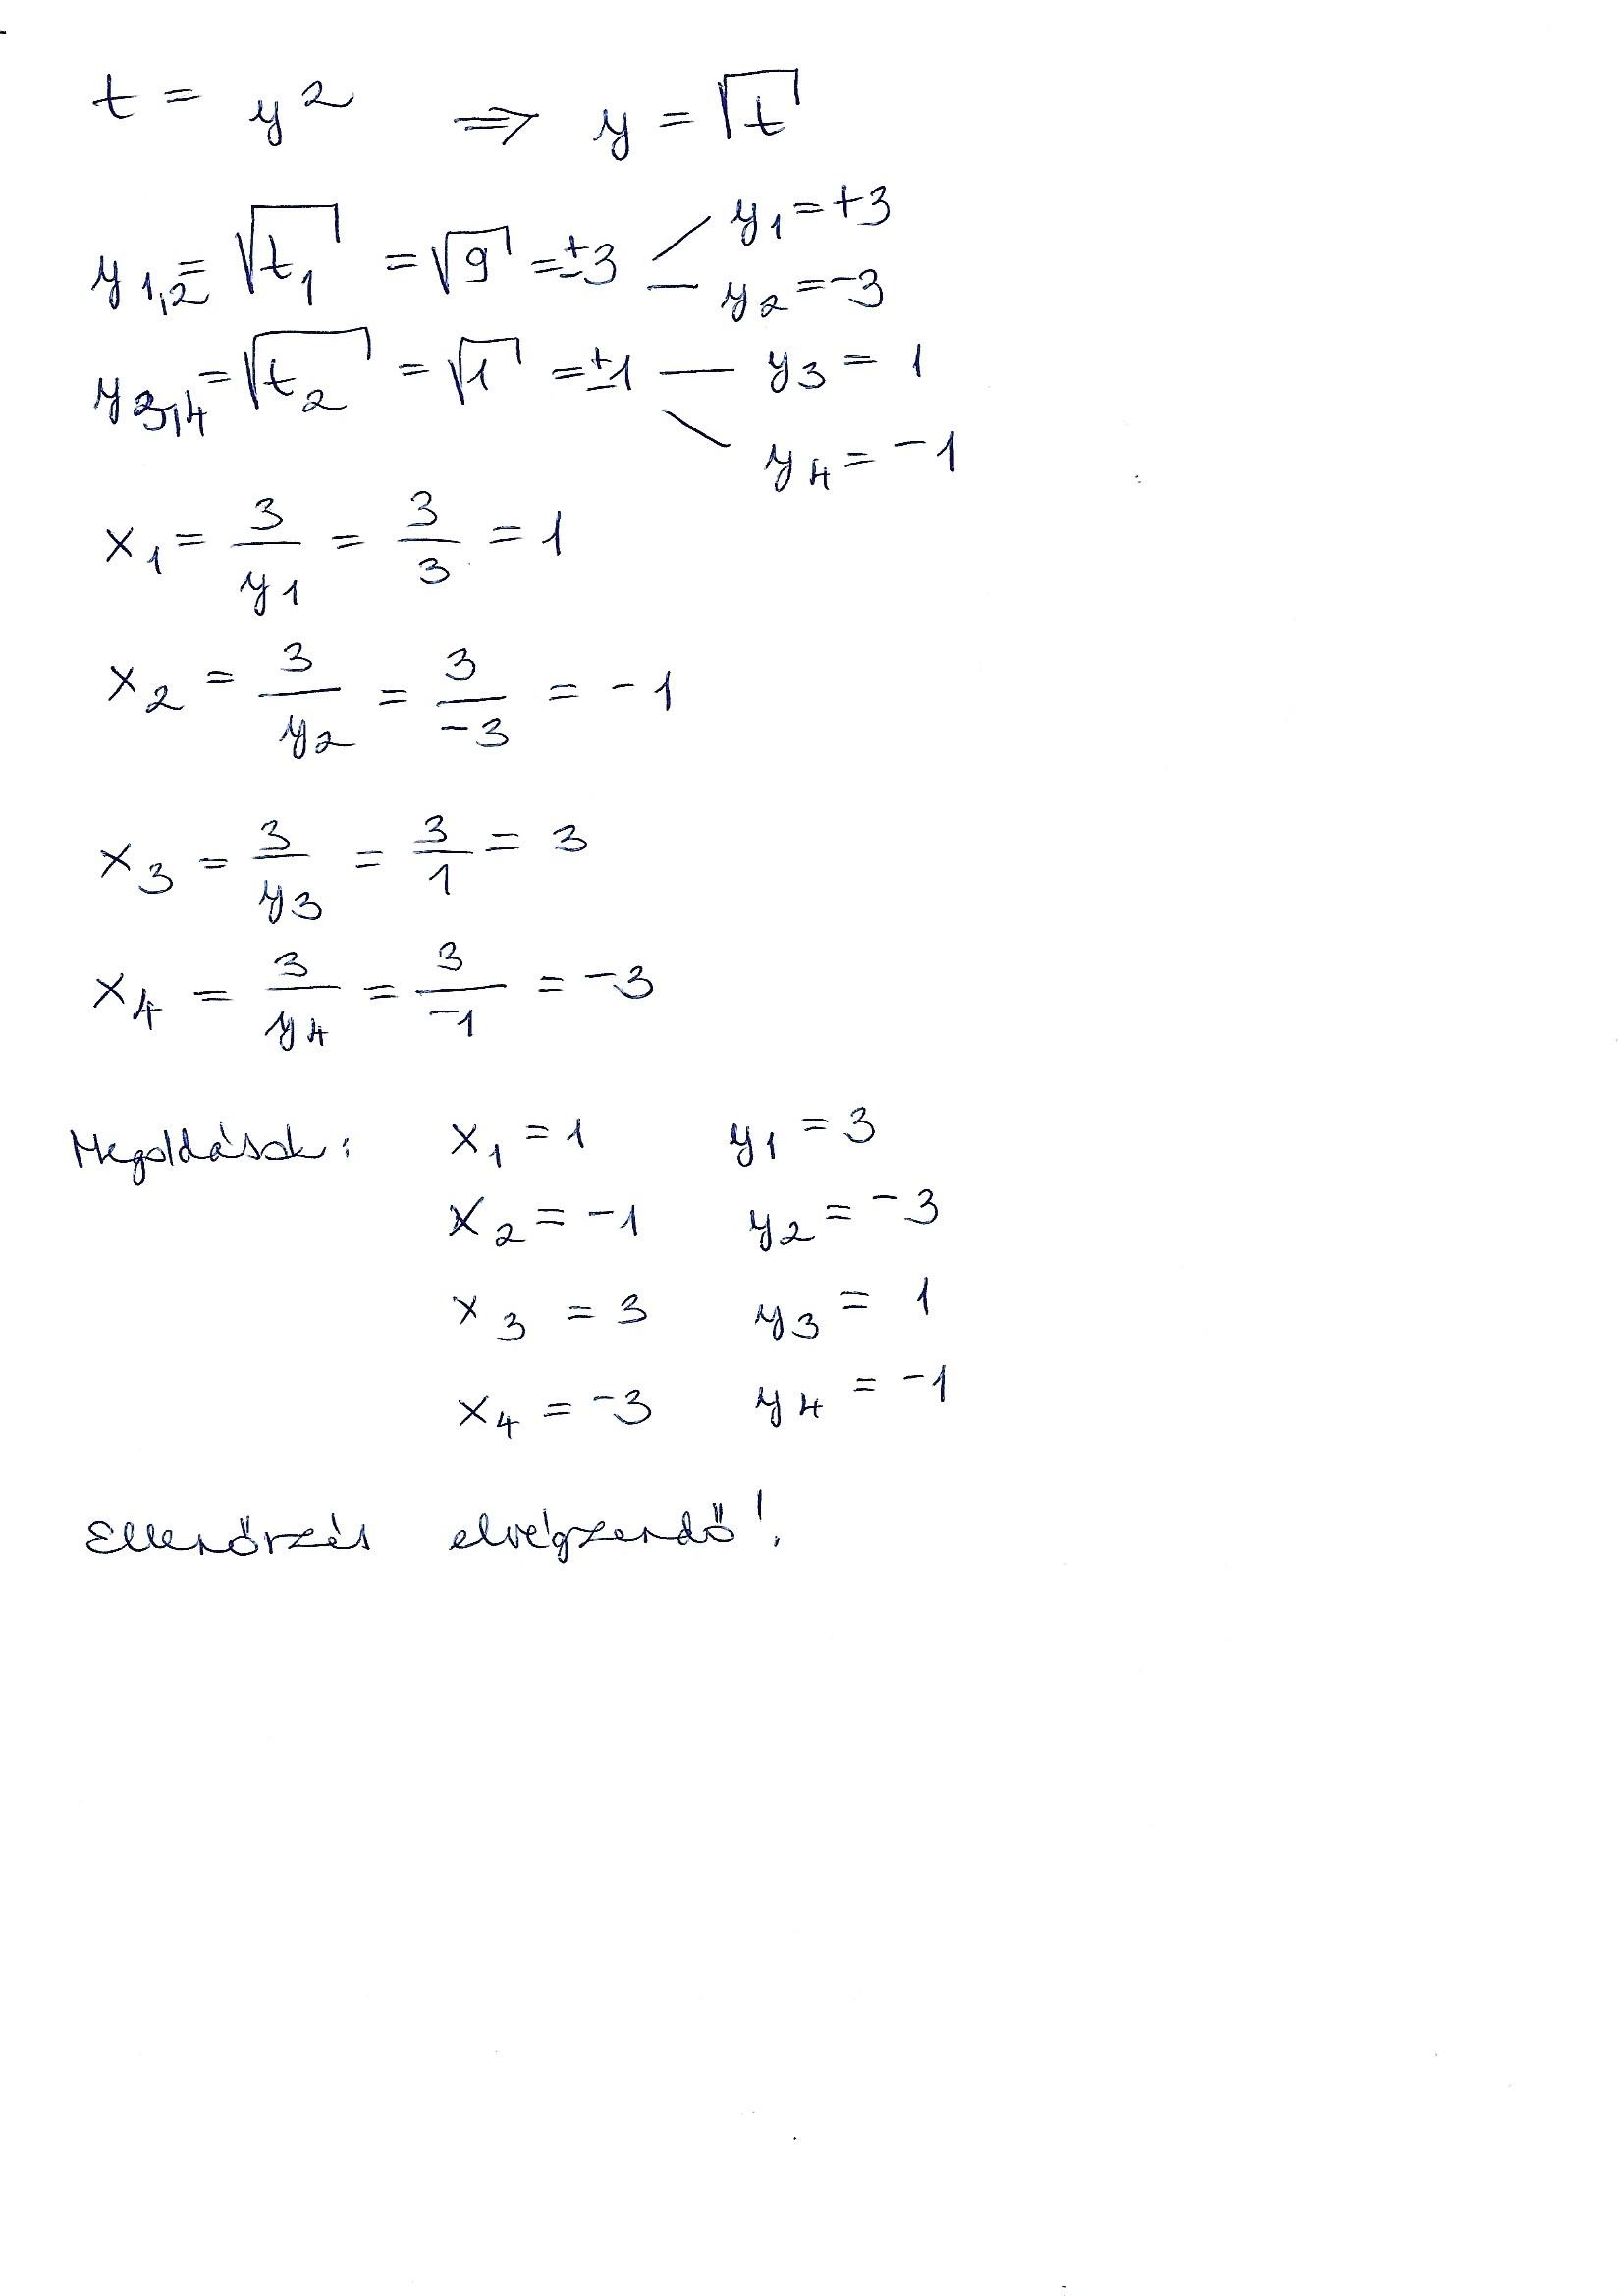 t = y² ⇒ y = √t
y₁,₂ = √t₁ = √9 = ±3 y₁ = +3
y₂ = -3
y₃,₄ = √t₂ = √1 = ±1 — y₃ = 1
y₄ = -1
x₁ = 3/y₁ = 3/3 = 1
x₂ = 3/y₂ = 3/-3 = -1
x₃ = 3/y₃ = 3/1 = 3
x₄ = 3/y₄ = 3/-1 = -3
Megoldások: x₁ = 1 y₁ = 3
x₂ = -1 y₂ = -3
x₃ = 3 y₃ = 1
x₄ = -3 y₄ = -1
Ellenőrzés elvégzendő!